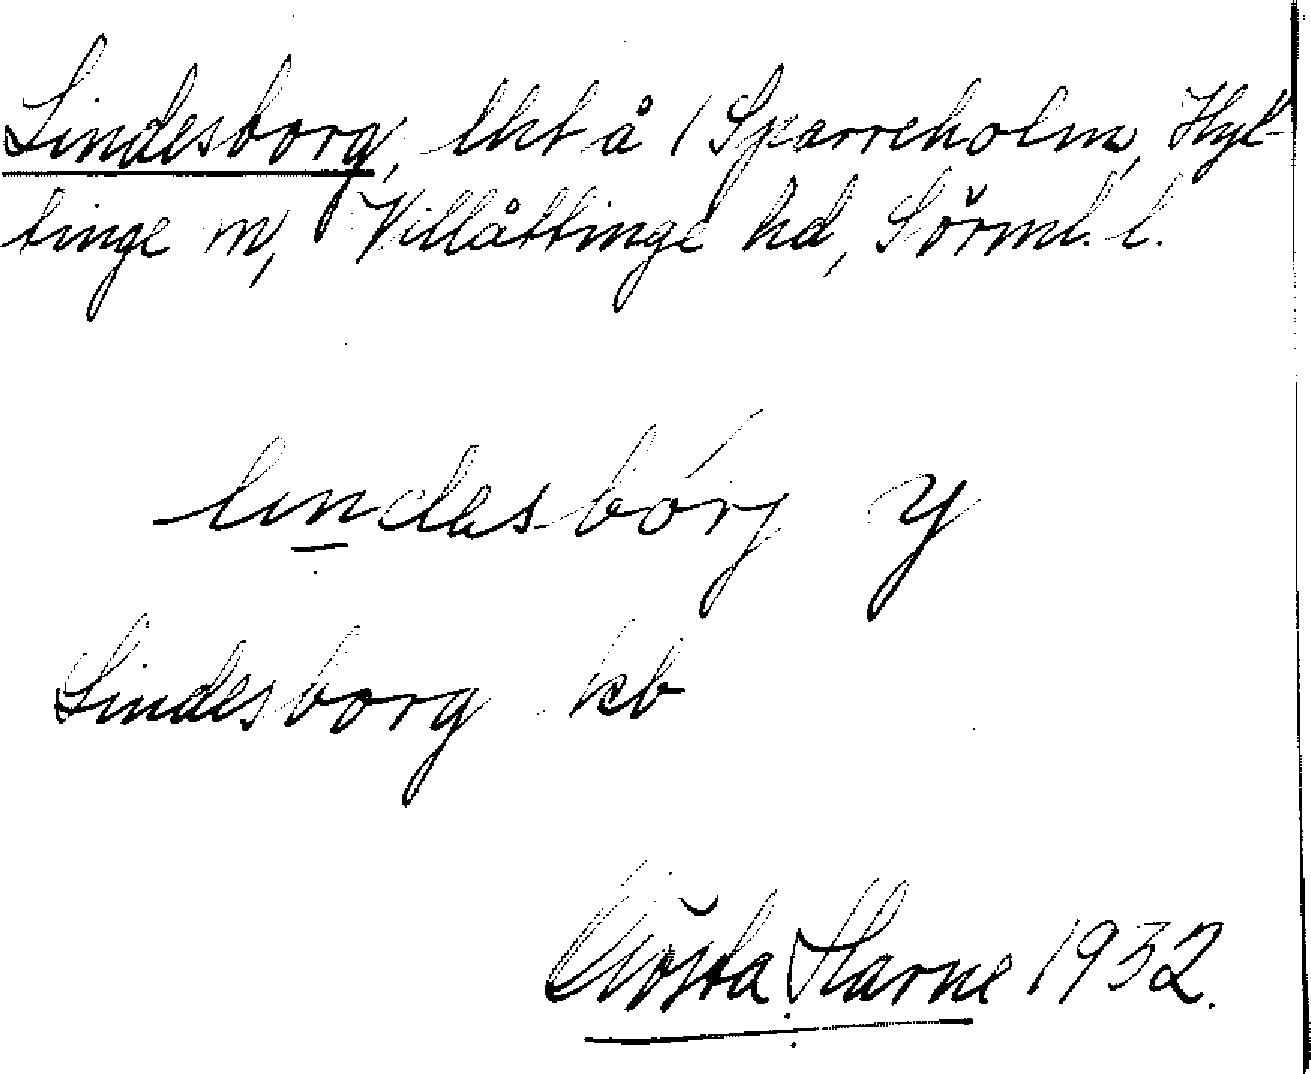 Lindesborg, lht å 1 Sparreholm, Hyl-
tinge sn, Villåttinge hd, Sörml. l.
lindasbórj y
Lindesborg kb
Gösta Harne 1932.